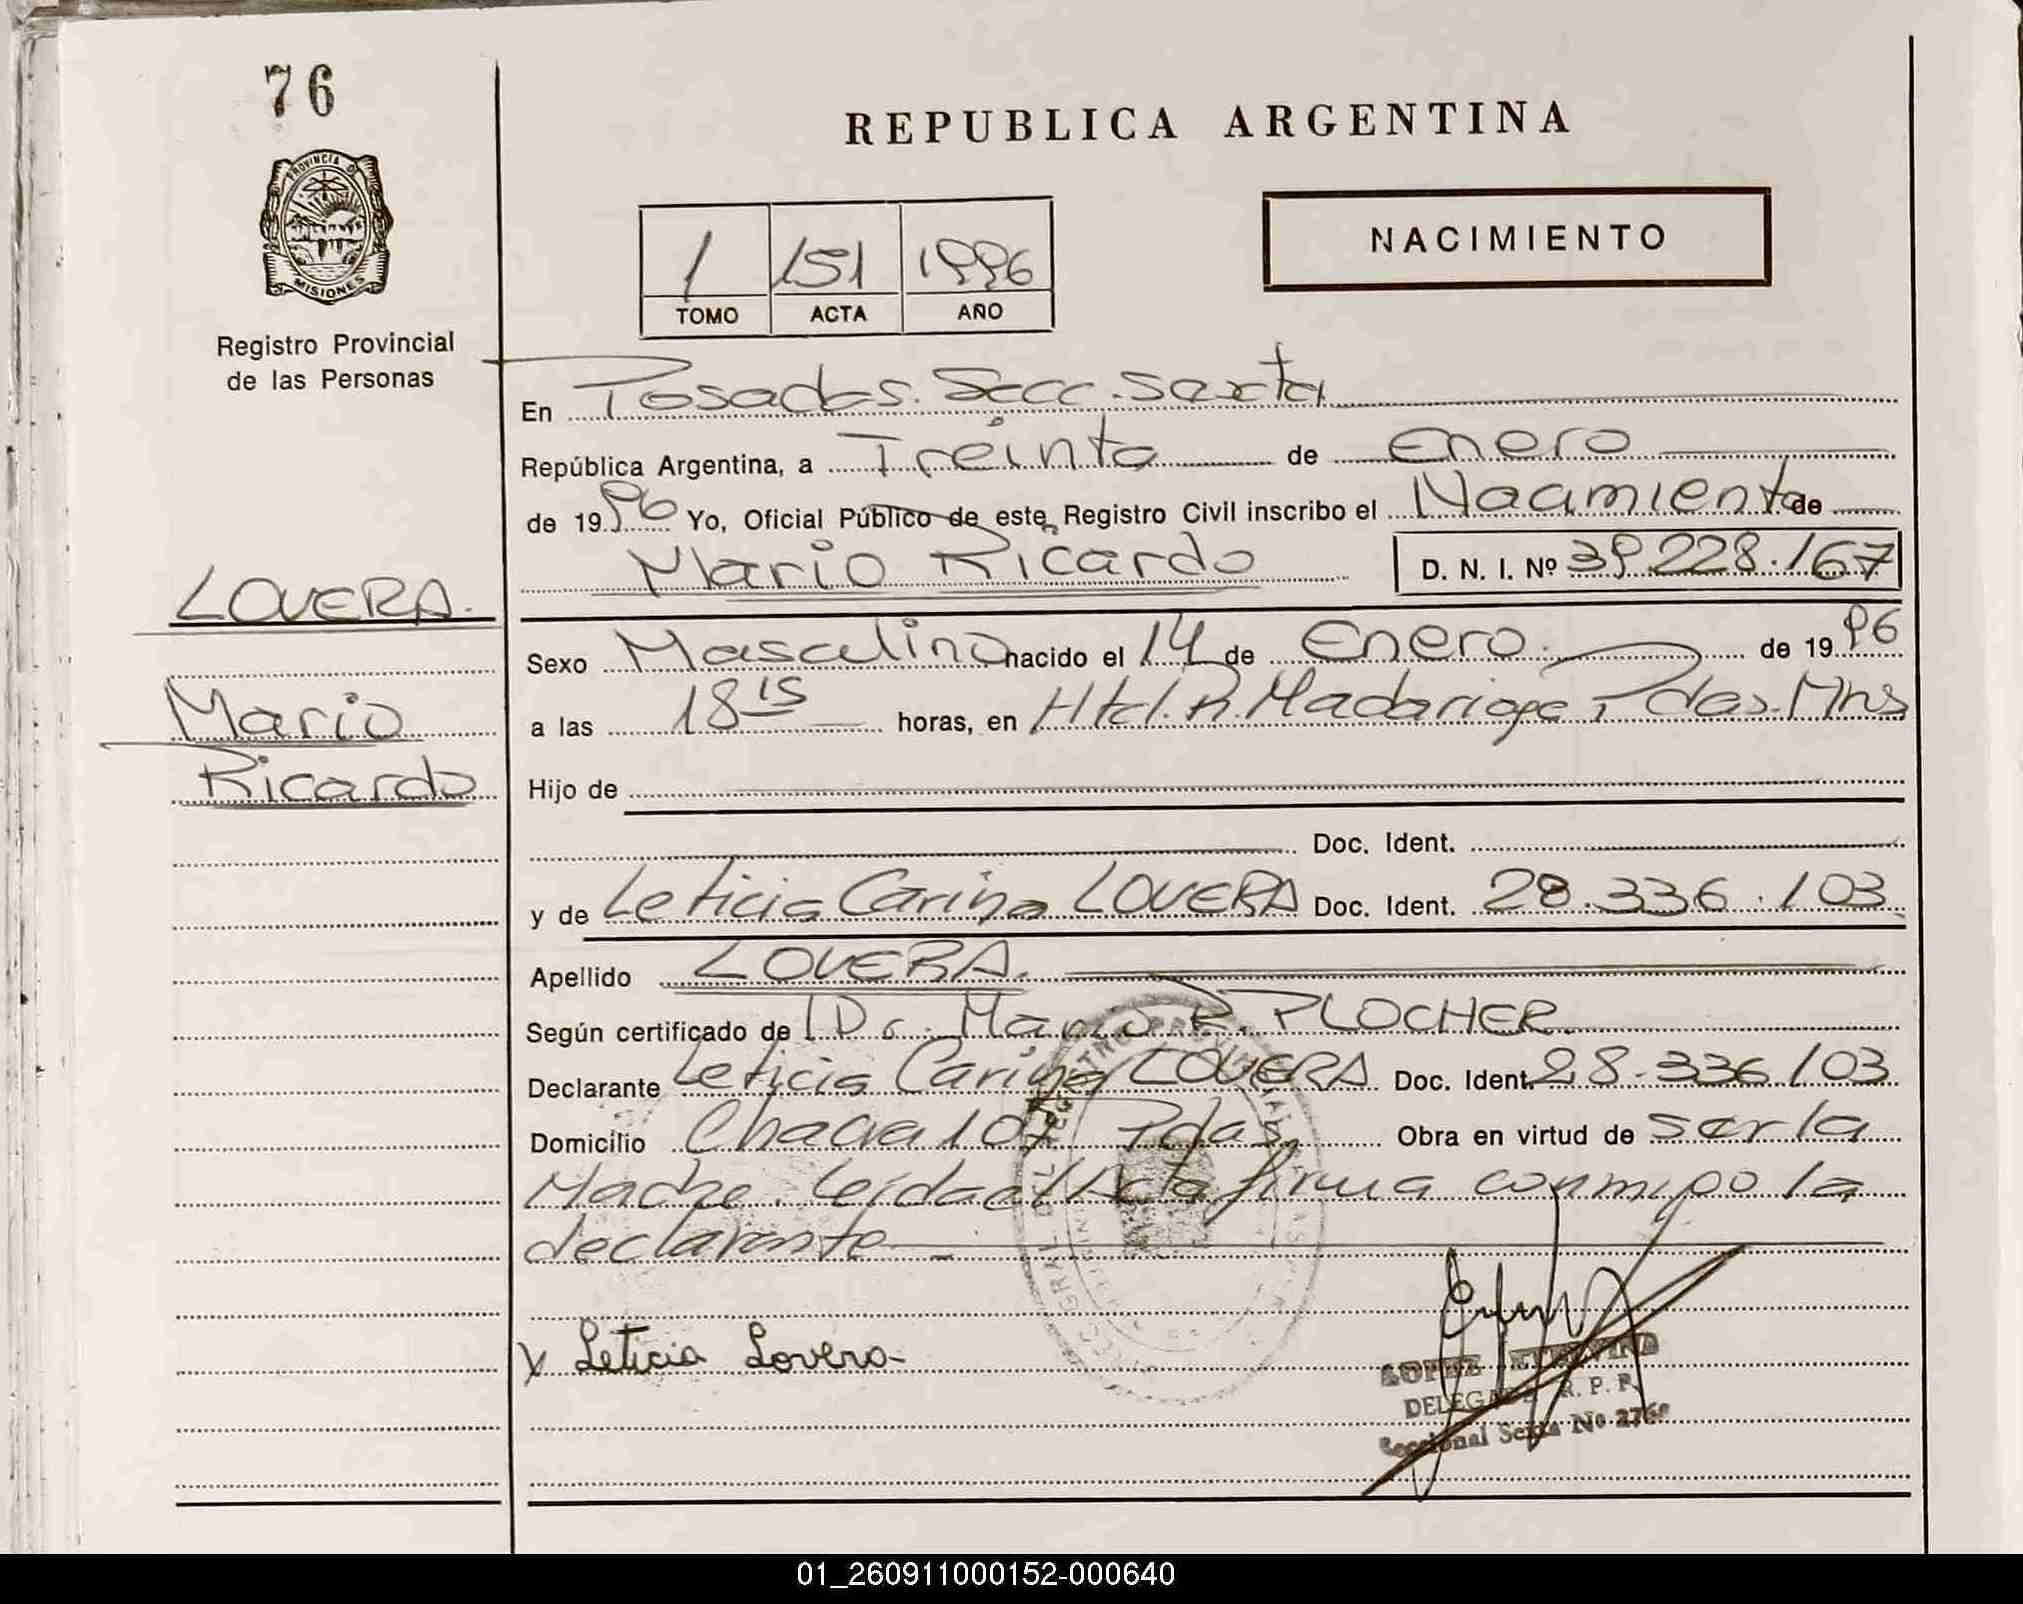 76
REPUBLICA ARGENTINA
PROVINCIA D
MISIONES
Registro Provincial
de las Personas
1 151 1996
TOMO ACTA AÑO
NACIMIENTO
En Posadas. Secc. Sexta
República Argentina, a Treinta de Enero
de 1996 Yo, Oficial Público de este Registro Civil inscribo el Nacimiento de
Mario Ricardo D. N. I. Nº 39.228.167
LOVERA.
Mario
Ricardo
Sexo Masculino nacido el 14 de Enero. de 1996
a las 18 15 horas, en Htal. R. Madariaga Pdas. Mns
Hijo de
Doc. Ident.
y de Leticia Carina LOVERA Doc. Ident. 28.336.103
Apellido LOVERA.
Según certificado de Dr. Mario R. PLOCHER
Declarante Leticia Carina LOVERA Doc. Ident. 28.336.103
Domicilio Chacra 107 Pdas. Obra en virtud de ser la
Madre. Leida el Acta firma conmigo la
declarante
x Leticia Lovera
LOPEZ
DELEGADA R. P. P.
Seccional Sexta No 276
01_260911000152-000640